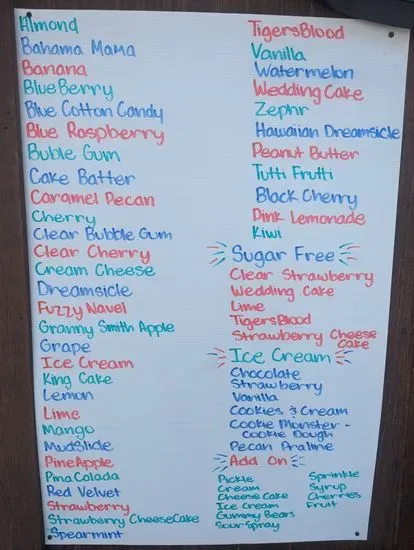 Almond
Bahama Mama
Banana
BlueBerry
Blue Cotton Candy
Blue Raspberry
Buble Gum
Cake Batter
Caramel Pecan
Cherry
Clear Bubble Gum
Clear Cherry
Cream Cheese
Dreamsicle
Fuzzy Navel
Granny Smith Apple
Grape
Ice Cream
King Cake
Lemon
Lime
Mango
Mudslide
PineApple
Pina Colada
Red Velvet
Strawberry
Strawberry CheeseCake
Spearmint
TigersBlood
Vanilla
Watermelon
Wedding Cake
Zephr
Hawaiian Dreamsicle
Peanut Butter
Tutti Frutti
Black Cherry
Pink Lemonade
Kiwi
Sugar Free
Clear Strawberry
Wedding Cake
Lime
TigersBlood
Strawberry Cheese
Cake
Ice Cream
Chocolate
Strawberry
Vanilla
Cookies & Cream
Cookie Monster -
Cookie Dough
Pecan Praline
Add On
Pickle
Cream
CheeseCake
Ice Cream
Gummy Bears
Sour Spray
Sprinkle
Syrup
Cherries
Fruit